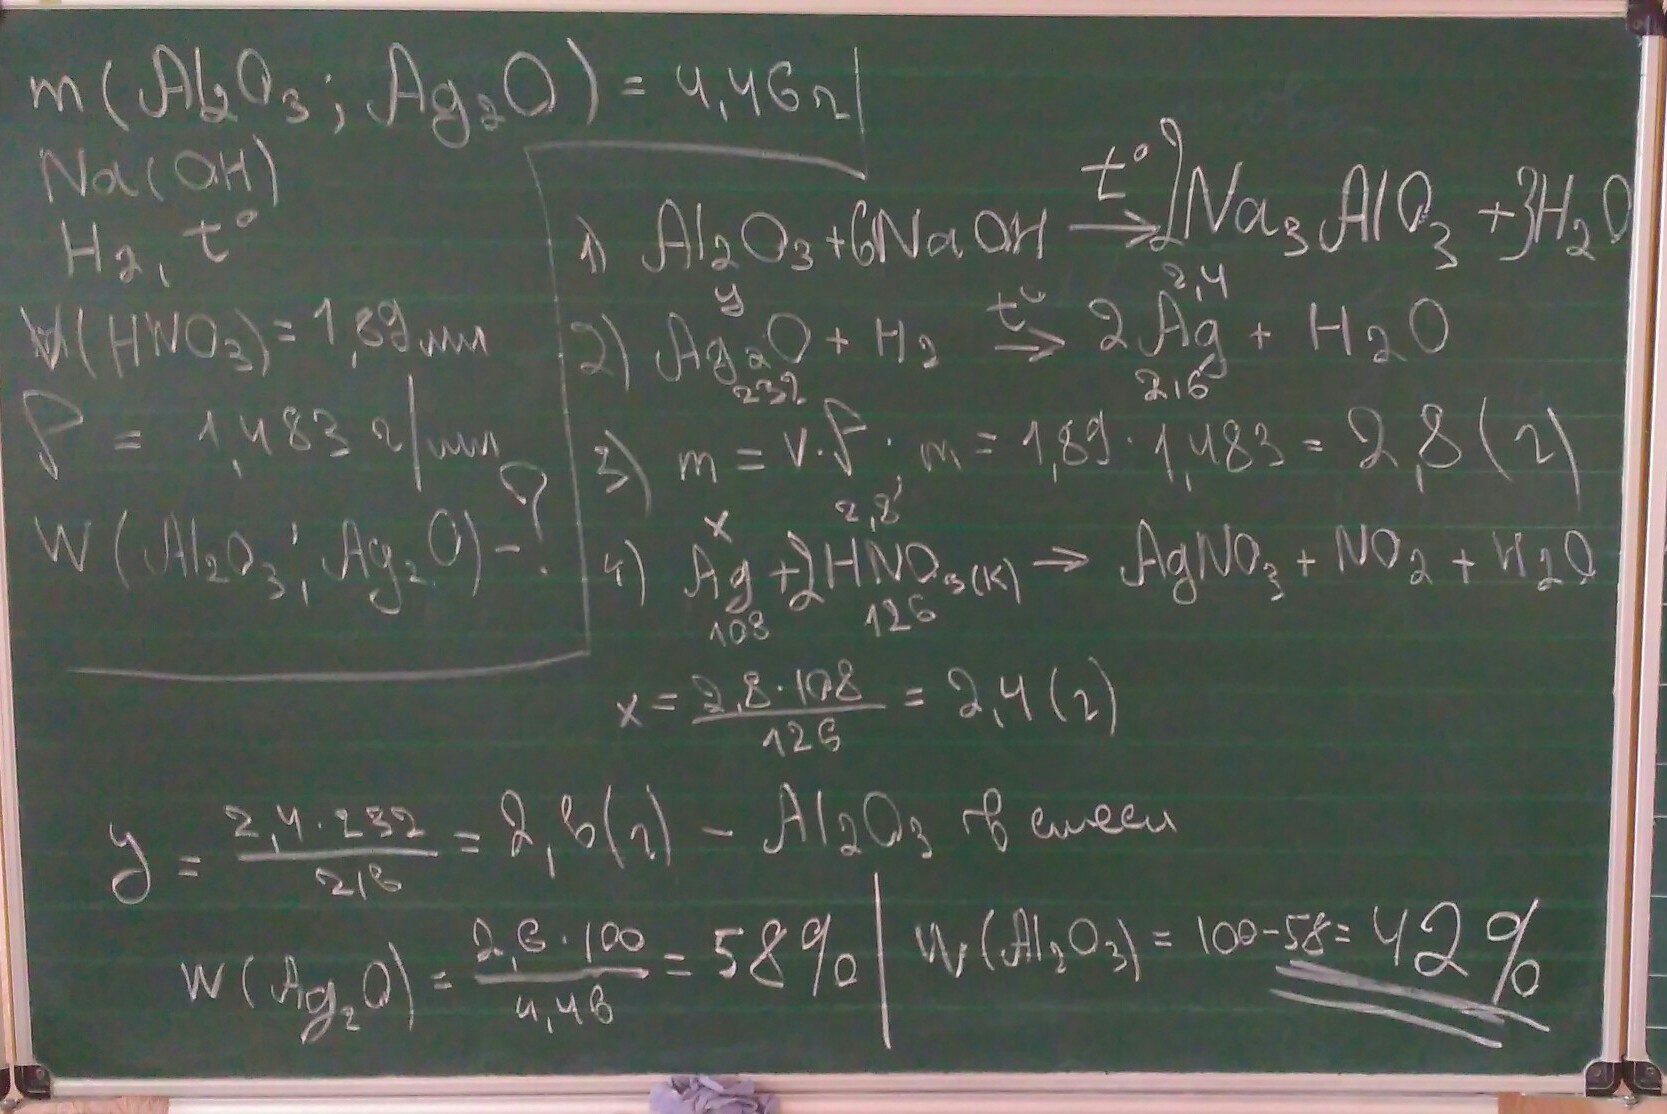 m(Al₂O₃; Ag₂O) = 4,46г
Na(OH)
H₂, t°
V(HNO₃) = 1,89 мл
ρ = 1,483 г/мл
W(Al₂O₃; Ag₂O) - ?
1) Al₂O₃ + 6NaOH t° → 2Na₃AlO₃ + 3H₂O
y 2,4
2) Ag₂O + H₂ t° → 2Ag + H₂O
232 216
3) m = V·ρ; m = 1,89 · 1,483 = 2,8 (г)
x 2,8
4) Ag + 2HNO₃(К) → AgNO₃ + NO₂ + H₂O
108 126
x = 2,8·108 / 126 = 2,4 (г)
y = 2,4·232 / 216 = 2,6 (г) – Al₂O₃ в смеси
W(Ag₂O) = 2,6·100 / 4,46 = 58% | W(Al₂O₃) = 100-58 = 42%